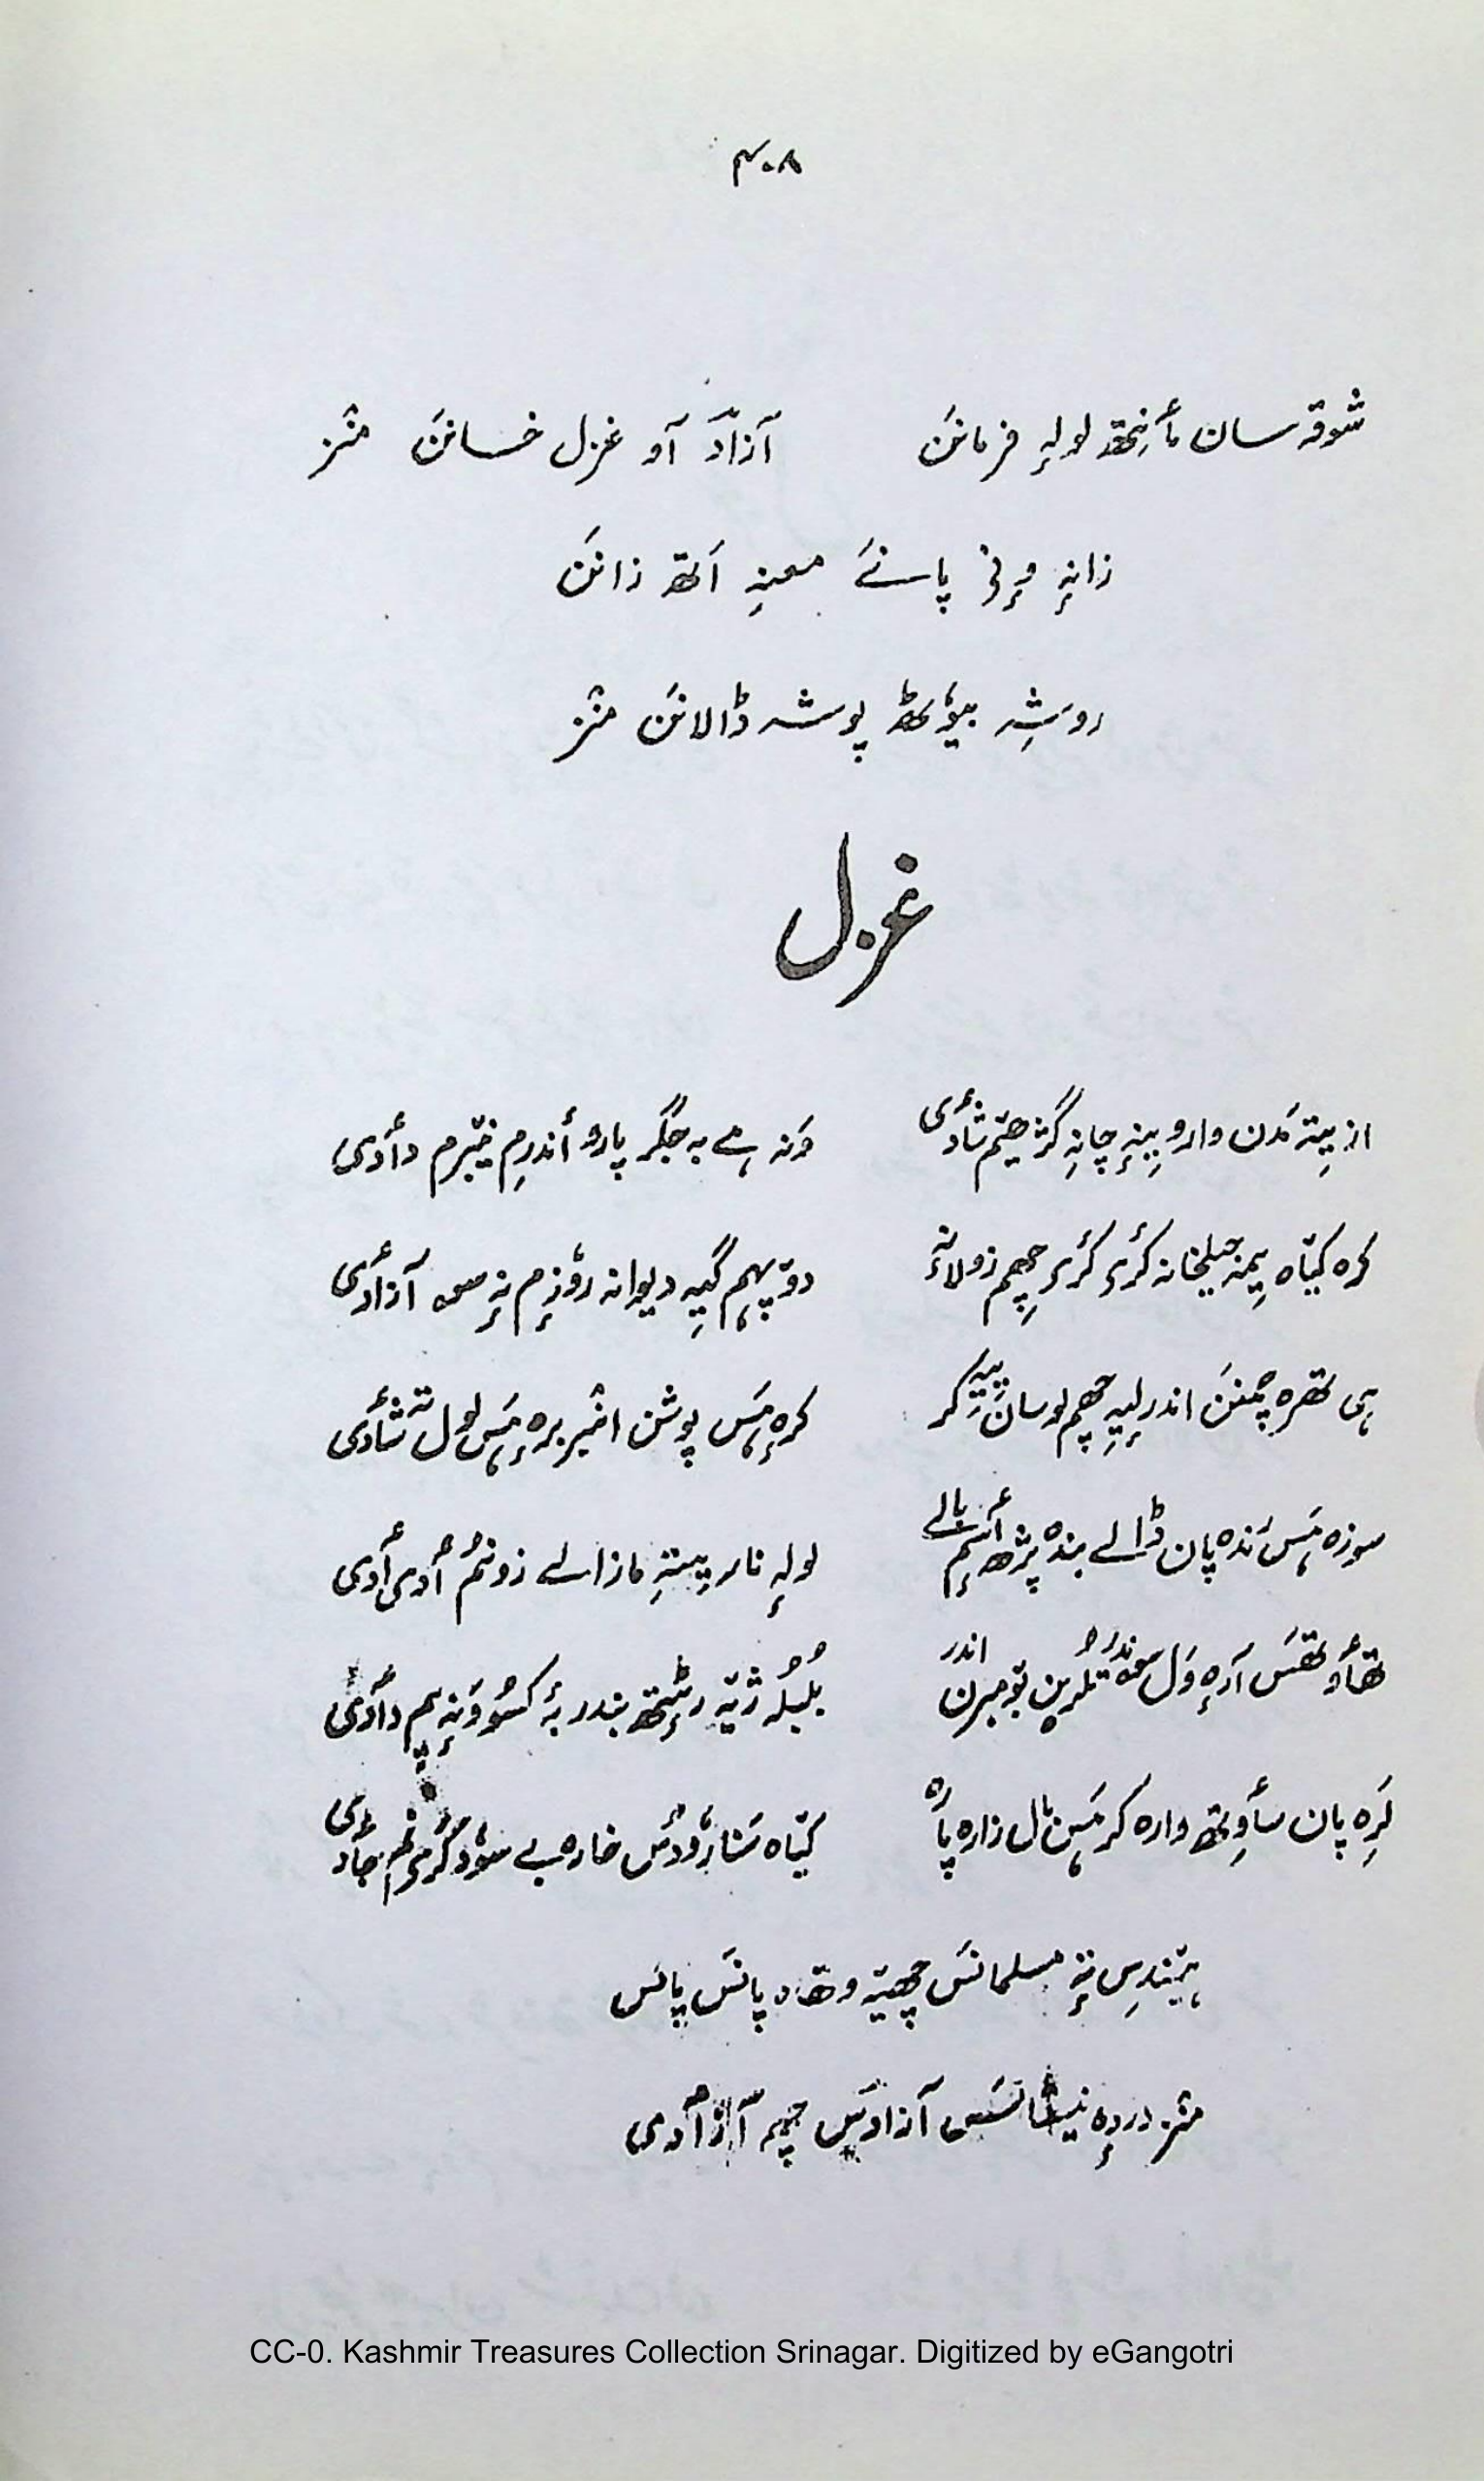 ۴۰۸
شوقہ سان مٲنِتھ لولہٕ فرمانَن آزادَ آو غزل خسانَن منٛز
زانہٕ وٕنۍ پانے معنہِ اَتھ زانَن
روشہِ بیوٗٹھ پوشہ ڈالانَن منٛز
غزل
از یِتہٕ مَدن وارو بینہِ چانہِ گژھیتم شٲدی وَنہ ہے بہ جگر پارو أندرِم نیٚبرم دٲدی
کرہ کیٚاہ یِمہٕ جیلخانہ کٔرۍ کٔرۍ چھِم زولانہٕ دۄپہم گیہِ دیوانہ روٗزٕم نہٕ سۄ آزٲدی
ہی تھرہ چمنَن اندر لیہِ چھم لوسان ییٚہِ کر کرہٕ ہَس پوشن امبر برہٕ ہَس لول تہٕ شٲدی
سوزہ ہَس نَدہ پان ڈالے بندہ پژھ أسٕم بالے لولہٕ نار یِتہِ مازالے زونمُ أدی أدی
تھٲوتھس آرہٕ وَل سۄندر تلرین بۄمبرن اندر بُلبُلہ ژٕیہ رٔٹِتھ بندر بہٕ کَسو وَنہٕ یِم دٲدی
لَرِہ پان سٲوِتھ وارہ کر ہَس نال زارہ پارہ کیٚاہ سَنا روٗدُس خارہ بے سوٗد گٔرۍ تھم جٲدی
ہیٚندِس تہٕ مسلمانَس چھیہٕ وتھ دِ پانَس پانَس
منٛز دردٕہ نیشانَس آزادَس چھہ آزٲدی
CC-0. Kashmir Treasures Collection Srinagar. Digitized by eGangotri